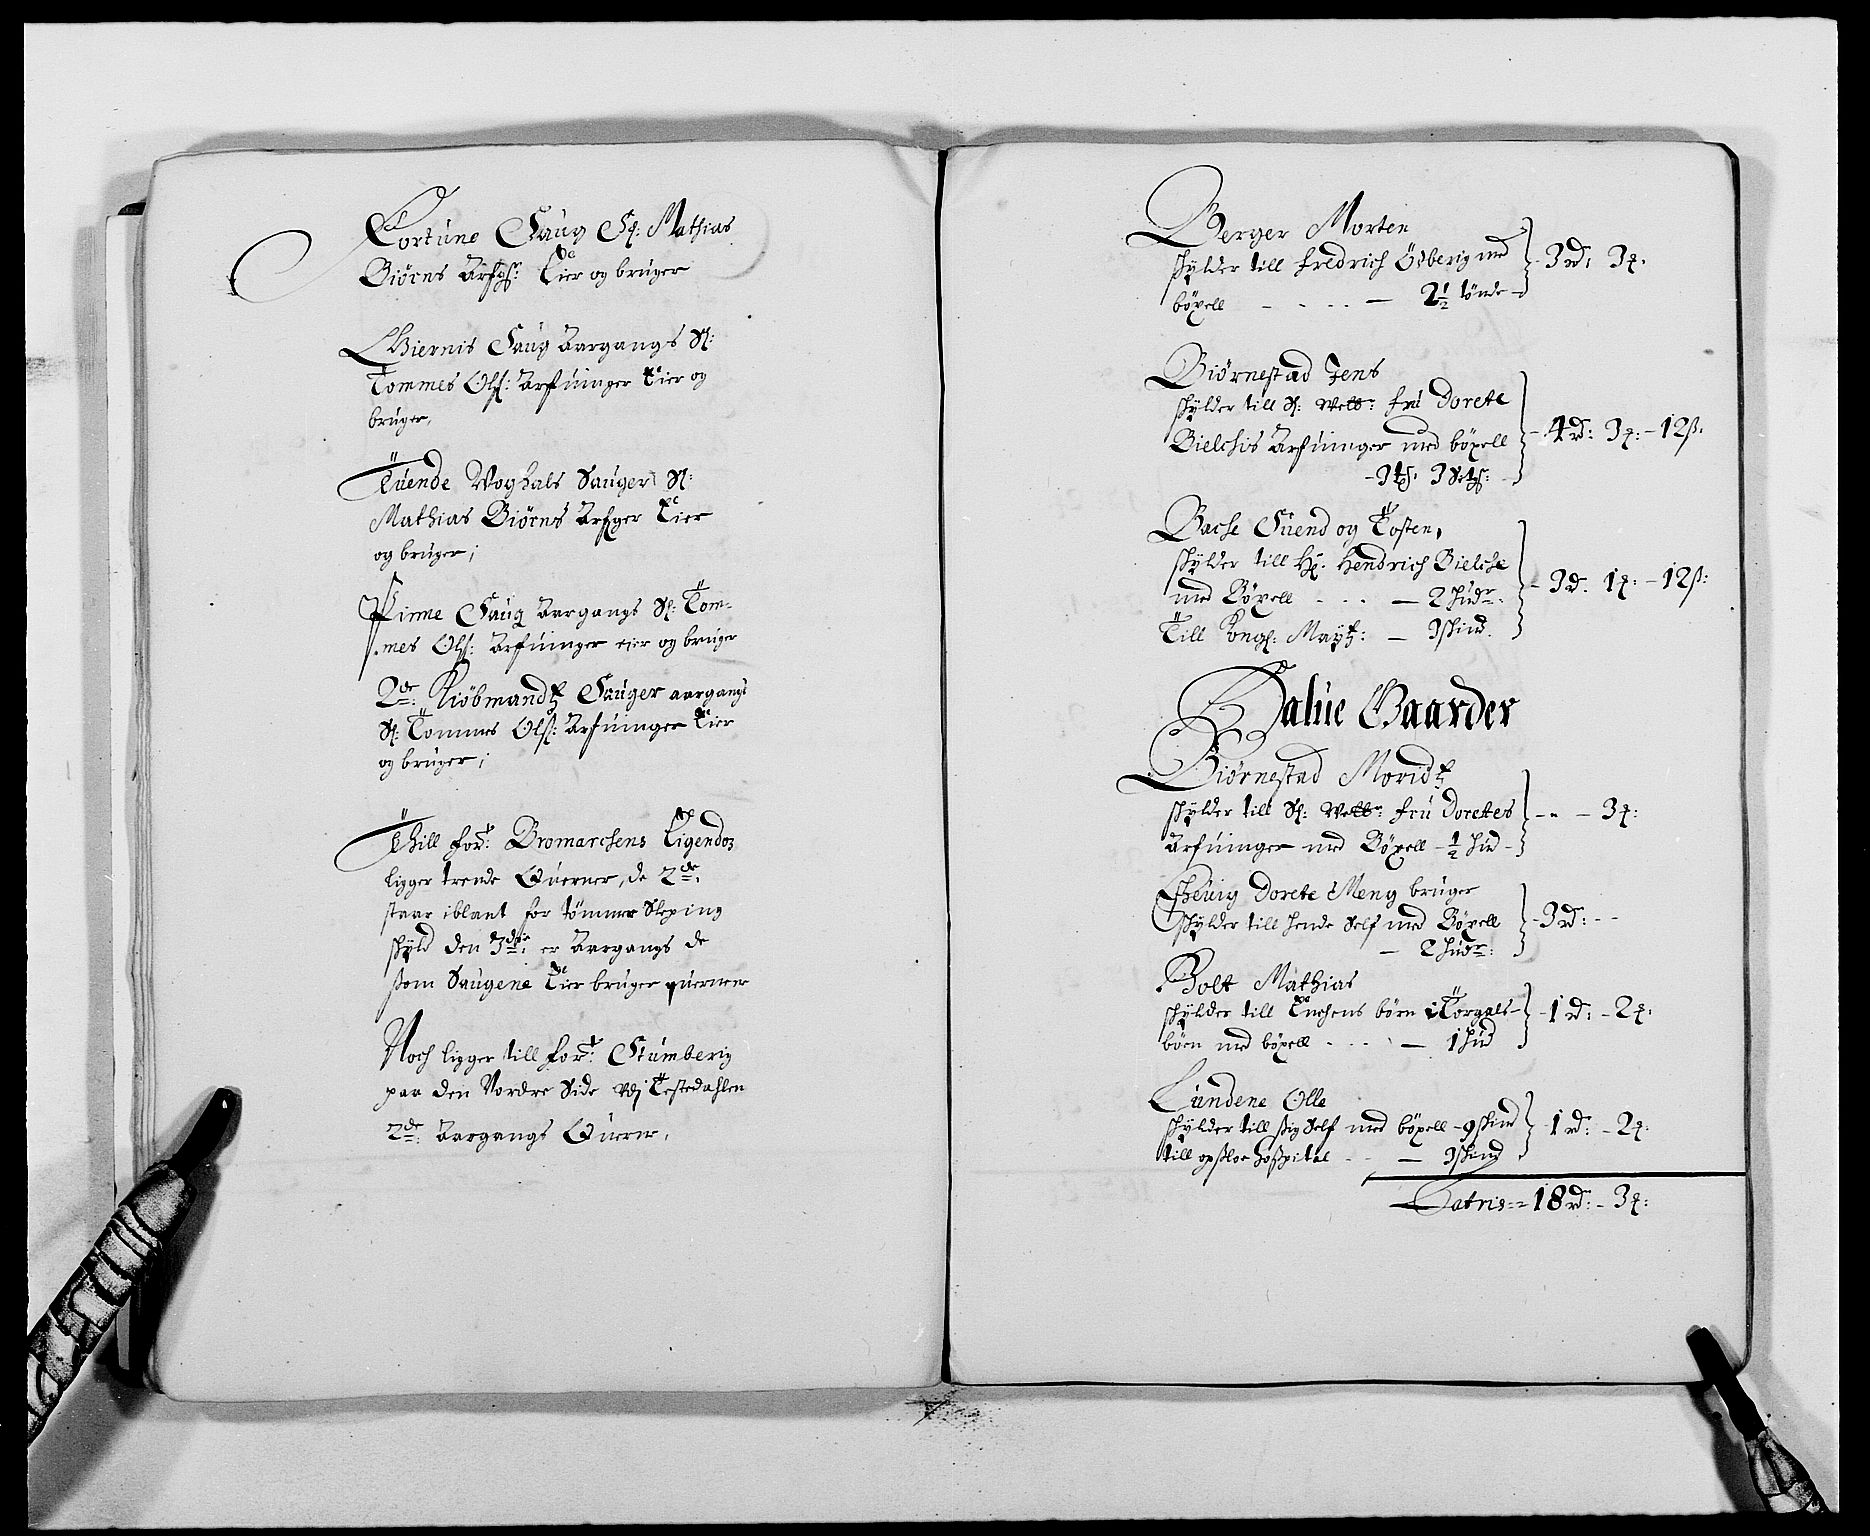 Fortune Saug Sl: Mathias
Biörns Arfg: Eier og bruger
Giernis Saug Aargangs Sl:
Tommes Olß: Arfuinger Eier og
bruger,
Tuende Woghals Sauger Sl:
Mathias Biörns Arfger Eier
og bruger;
Pinne Saug Aargangs Sl: Tom-
mes Olß: Arfuinger eier og bruger
2de: Kiöbmandz Sauger aargangs
Sl: Tommes Olß: Arfuinger Eier
og bruger;
Thill for: Bromarchens Eigendoz
ligger trende Querner, de 2de:
staar iblant for tömmer Sleping
skyld den 3die: er Aargangs de
som Saugene Eier bruger querner
Noch ligger till for: Stumberig
paa den Nordre Side vdj Testedahlen
2de: Aargangs Querne,
Berger Morten
skylder till fredrich Ösberig med
böxell - - - - - 2½ tönde - 3rd: 3q:
Biörnestad Jens
skylder till Sl: Welb: fru Dorete
Bielchis Arfuinger med böxell - 4rd: 3q: - 12ß:
- 3 3 Setg:
Bache Suend og Tosten,
skylder till Hr: Hendrich Bielche
med Böxell - - - - 2 hudr: - 3rd. 1q: - 12ß:
Till Kongl: Maytz: - 3 skind.
Halue Gaarder
Biörnestad Moridz
skylder till Sl: Welb: fru Doretes - - - 3q:
Arfuinger med Böxell - ½ hud -
Dorete Meng bruger
skylder till hende Self med Böxell - 3rd: - -
- 2 hudr:
Holt Mathias
skylder till Enchens börn i Torgals - 1rd: - 2q:
börn med böxell - - - - 1 hud
Lundene Olle
skylder till sig Self med böxell - 9 skind - 1rd: - 2q:
till opsloe hospital - - - 3 skind
Latris = 18rd: - 3q: